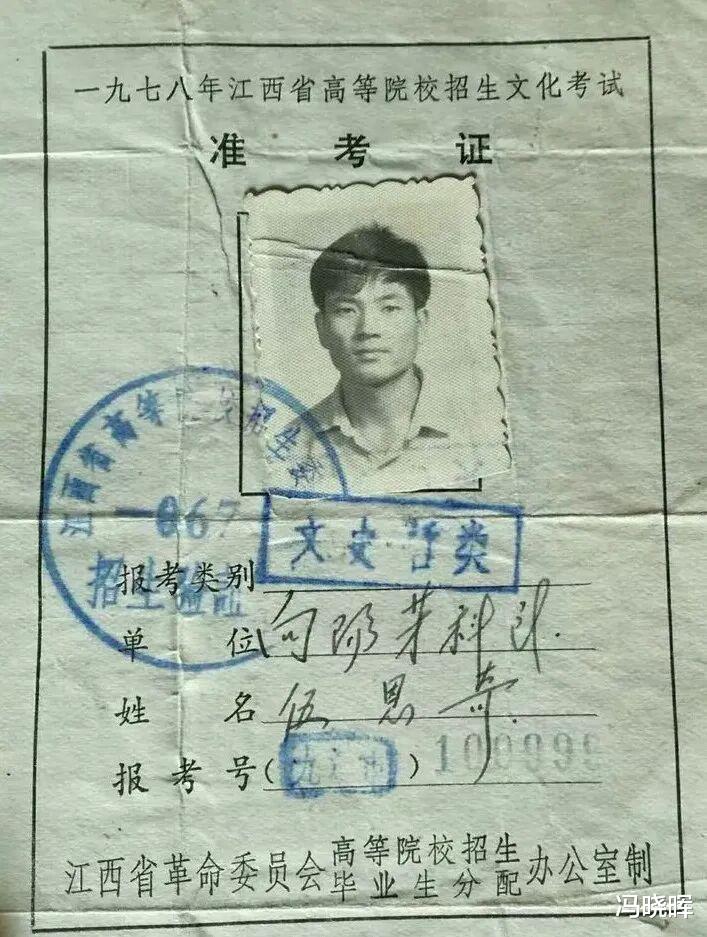 一九七八年江西省高等院校招生文化考试
准考证
江西省高等 招生委
067
招生
文史 类
报考类别
单位 向阳 科
姓名 伍思奇
报考号(九江市) 100999
江西省革命委员会高等院校招生毕业生分配办公室制
冯晓晖